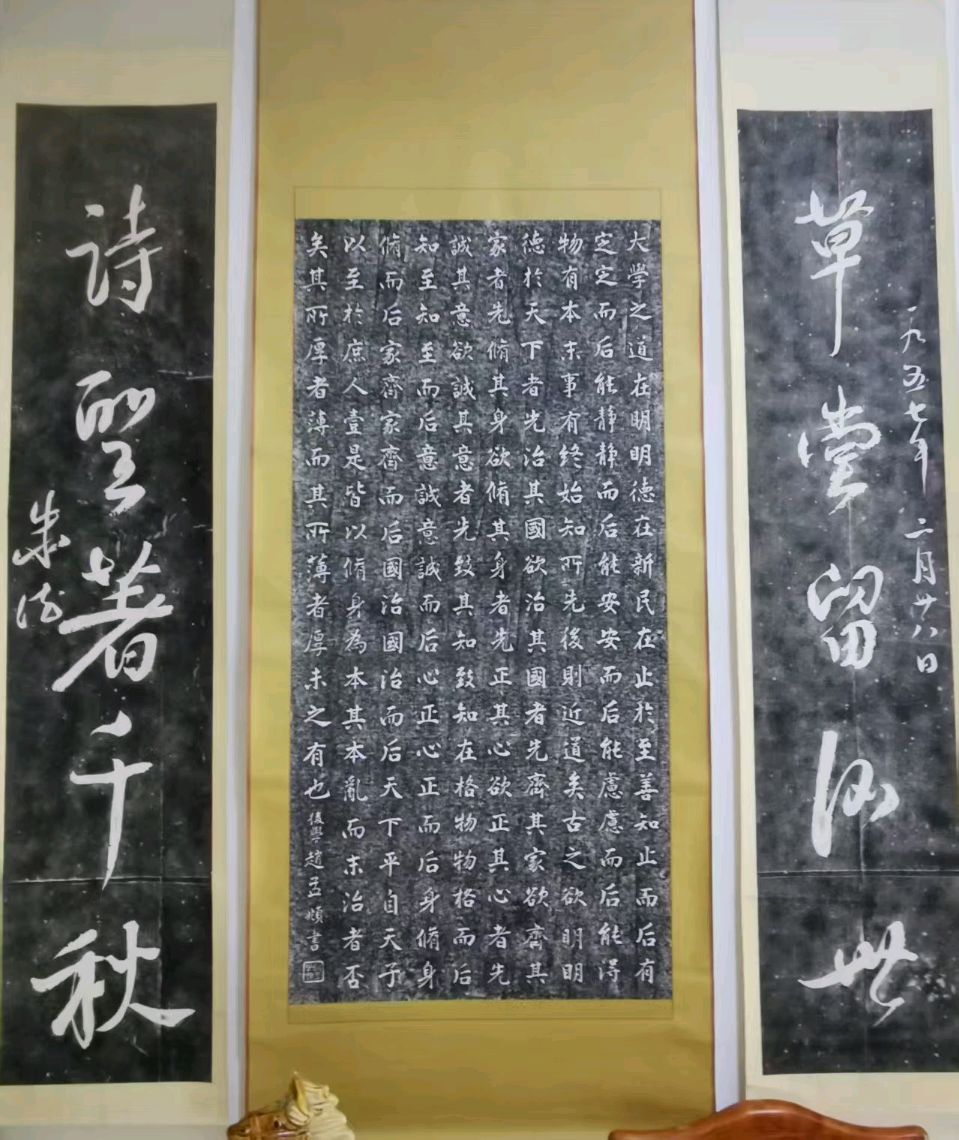 一九五七年二月廿八日
草堂留後世
大學之道在明明德在新民在止於至善知止而后有
定定而后能靜靜而后能安安而后能慮慮而后能得
物有本末事有終始知所先後則近道矣古之欲明明
德於天下者先治其國欲治其國者先齊其家欲齊其
家者先脩其身欲脩其身者先正其心欲正其心者先
誠其意欲誠其意者先致其知致知在格物物格而后
知至知至而后意誠意誠而后心正心正而后身脩身
脩而后家齊家齊而后國治國治而后天下平自天子
以至於庶人壹是皆以脩身為本其本亂而末治者否
矣其所厚者薄而其所薄者厚未之有也 後學趙孟頫書
詩聖著千秋
朱德